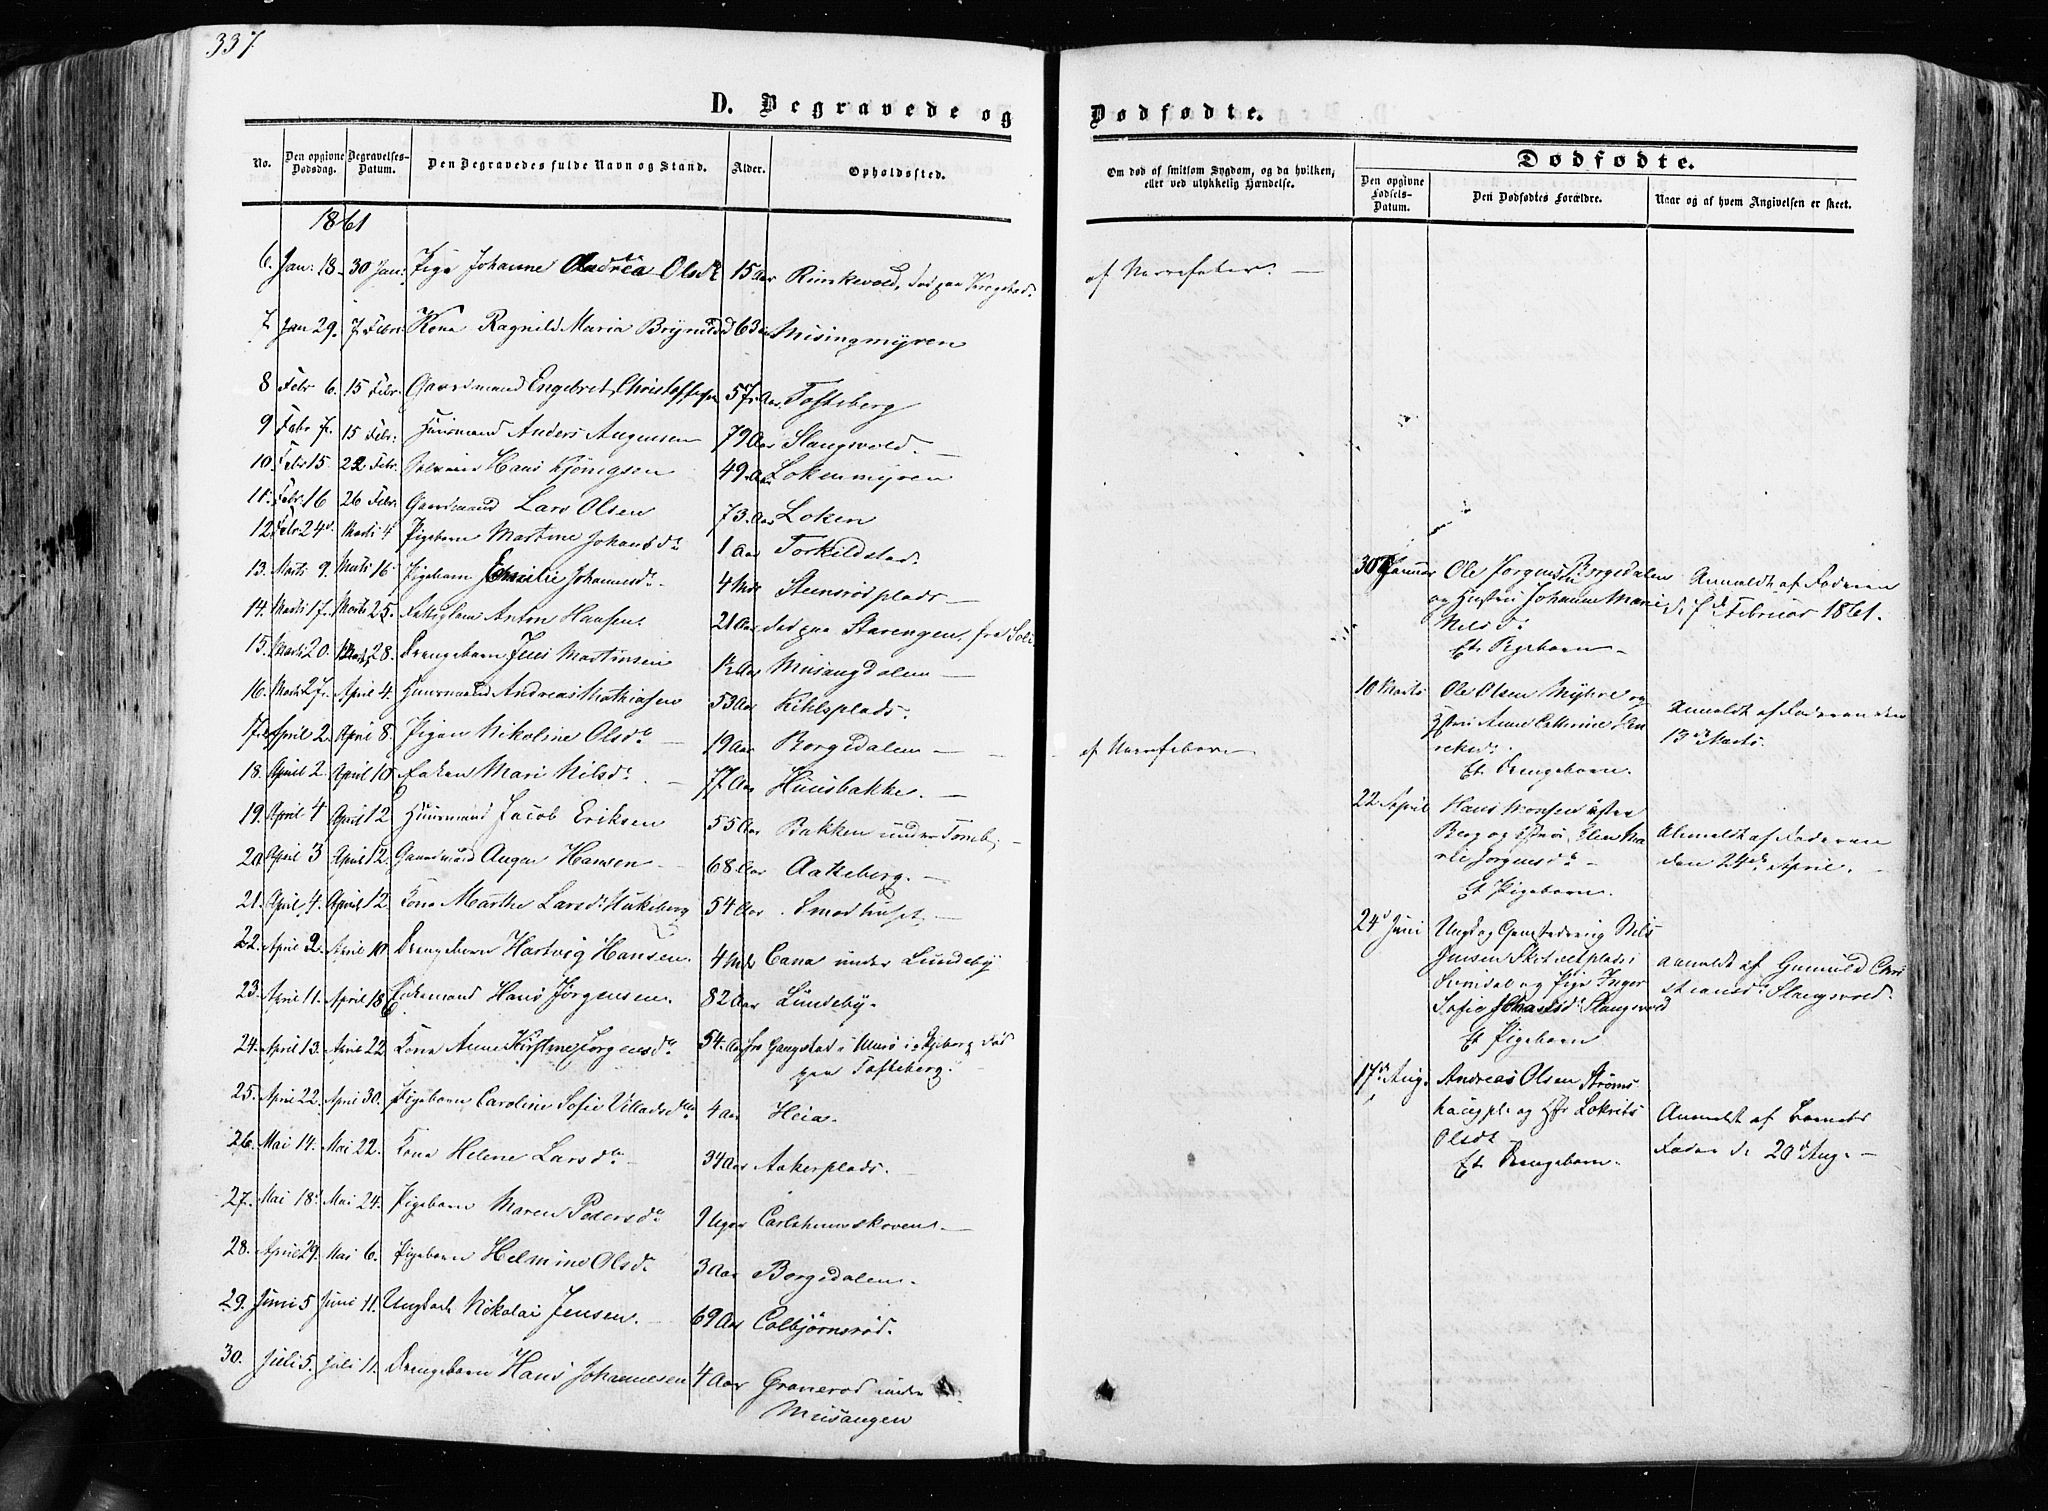 337.
D. Begravede og
No. Den opgivne Dødsdag. Begravelses-Datum. Den Begravedes fulde Navn og Stand. Alder. Opholdssted.
1861
6. Jan: 18. 30 Jan: Pige Johanne Andrea Olsdt 15 Aar Rinkevold, død paa
7. Jan 29. 7 Febr: Kona Ragnild Maria Brynildsd 63 Aar Misingmyren
8 Febr 6. 15 Febr. Gaardmand Engebret Christoffersen 57 Aar Tofteberg
9 Febr 7. 15 Febr: Huusmand Anders Augensen 79 Aar Slangsvold. —
10. Febr 15. 22 Febr. Hans 49. Aar Lokenmyren
11. Febr. 16 26 Febr. Gaardmand Lars Olsen 73. Aar Loken
12. Febr. 24d. Marts 4 Pigebarn Martine Johansdt 1 Aar Torkildstad.
13. Marts 9. Marts 16 Pigebarn Emilie Johannesdt. 4 Mdr Steensrødplads —
14. Marts 17. Marts 25. Fattiglem Anton Hansen 21 Aar død paa Starengen, fra
15. Marts 20. Marts 28. Drengebarn Jens Martinsen ½ Aar Misangdalen —
16. Marts 27. April 4. Huusmand Andreas Mathiasen 53 Aar Kihlsplads.
17. April 2. April 8. Pigen Nikoline Olsdt — 19 Aar Borgedalen —
18. April 2. April 10. Enken Mari Nilsdt. — 77 Aar Huusbakke. —
19. April 4 April 12 Huusmand Jacob Eriksen 55 Aar Bakken under Tomb.
20. April 3 April 12. Gaardmand Augen Hansen — 68 Aar Aakeberg. —
21. April 4. April 12. Kona Marthe Larsdt Hukeberg 54 Aar. Smedhuset. —
22. April 2. April 10. Drengebarn Hartvig Hansen. 4 Mdr Cana under Lundeby
23. April 11. April 18. Enkemand Hans Jørgensen. 82 Aar Lundeby.
24. April 13. April 22 Kona Anne Kirstine Jørgensdt 54. Aar fra Gangstad i død
paa Tofteberg.
25. April 22. April 30. Pigebarn Caroline Sofie Villadsdtr 4 Aar Heia.
26. Mai 14. Mai 22. Kona Helene Larsdtr — 34 Aar Aakerplads. —
27. Mai 18d. Mai 24. Pigebarn Maren Pedersdt 9 Uger Carlshuusskoven. —
28. April 29. Mai 6. Pigebarn Helmine Olsdt 3 Aar Borgedalen.
29. Juni 5. Juni 11. Ungkarl Nikolai Jensen. — 69 Aar Colbjørnsrød.
30. Juli 5. Juli 11. Drengebarn Hans Johannesen 4 Aar Granerød under
Misangen
Dødfødte.
Om død af smitsom Sygdom, og da hvilken, eller ved ulykkelig Hændelse.
Dødfødte.
Den opgivne Fødsels-Datum. Den Dødfødtes Forældre. Naar og af hvem Angivelsen er skeet.
af Nervefeber. —
af Nervefeber —
30 Januar Ole Jørgensen Borgedalen Anmeldt af Faderen
og Hustru Johanne Marie d. 7d Februar 1861.
Nilsdt.
Et Pigebarn —
10 Marts Ole Olsen Myhre og Anmeldt af Faderen den
Hstru Anne Cathrine Hen 13de Marts.
riksdt.
Et Drengebarn.
22 April Hans Monsen
Berg og Hstru Elen Ma Anmeldt af Faderen
rie Jørgensdt — den 24de April. —
Et Pigebarn.
24d Juni Ungk. og Gaardadreng Nils
Jensen i anmeldt af Gunnild Chri
og Pige Inger stiansdt Slangsvold.
Sofie Slangsvold
Et Pigebarn
17de Aug. Andreas Olsen Strøms
haugpl. og Hstr Lokrits Anmeldt af Barnets
Olsdt Fader d. 20d Aug. —
Et Drengebarn.